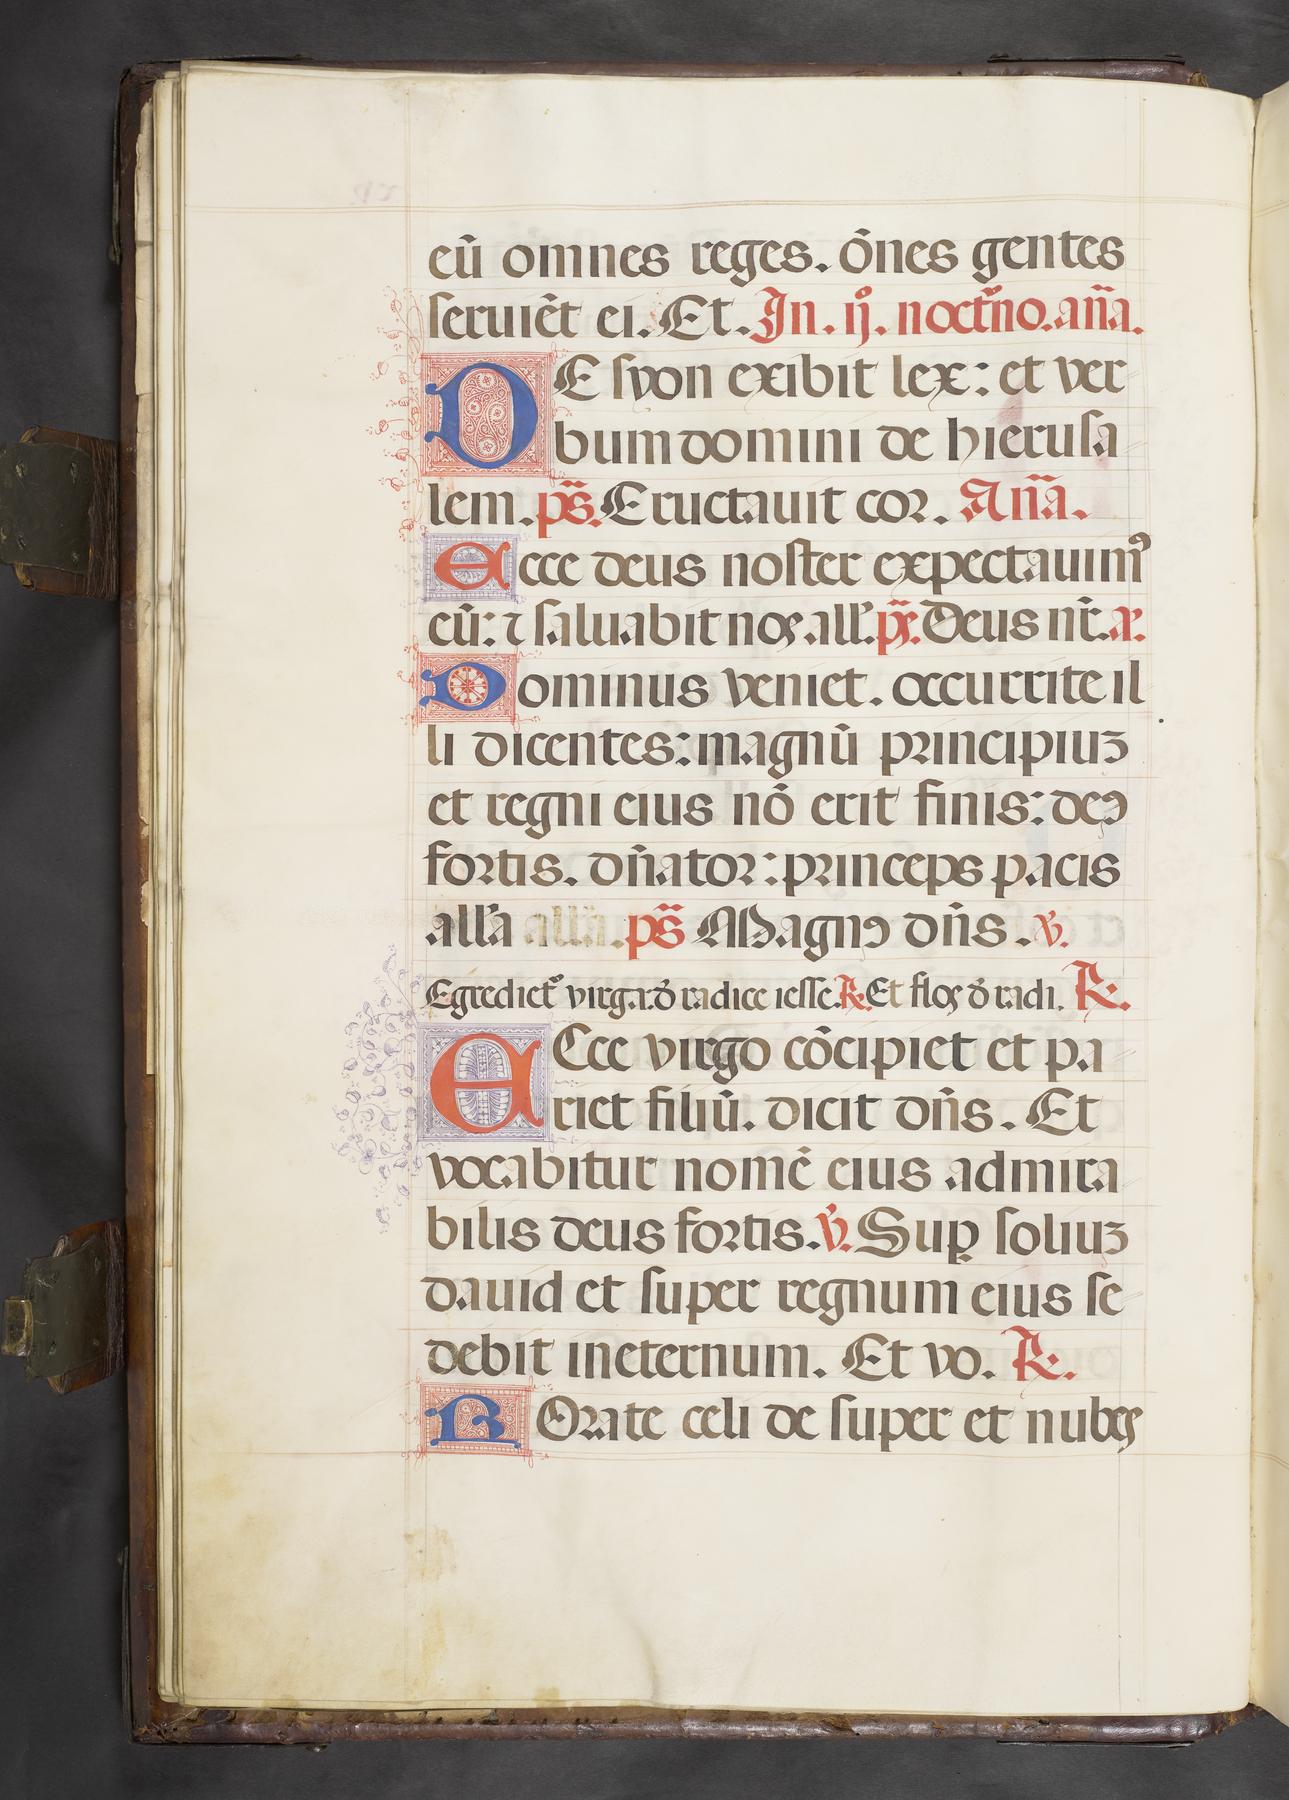 eū omnes reges. ōnes gentes
seruiēt ei. Et. In. ij. noct̄no. añа.
DE syon exibit lex: et ver
bum domini de hierusa
lem. ps̄. Eructauit cor. Añа.
Ecce deus noster expectauimꝰ
eū: ⁊ saluabit nos. all'. ps̄. Deus nr̄. a.
Dominus veniet. occurrite il
li dicentes: magnū principiuꝫ
et regni eius nō erit finis: deꝰ
fortis. dn̄ator: princeps pacis
all'a all'a. ps̄ Magnꝰ dn̄s. v.
Egrediet᷑ virga. d̄ radice iesse. ℟. Et flos d̄ radi. ℟.
ECce virgo cōcipiet et pa
riet filiū. dicit dn̄s. Et
vocabitur nomē eius admira
bilis deus fortis. ℣. Suꝑ soliuꝫ
dauid et super regnum eius se
debit ineternum. Et vo. ℟.
ROrate celi de super et nubes